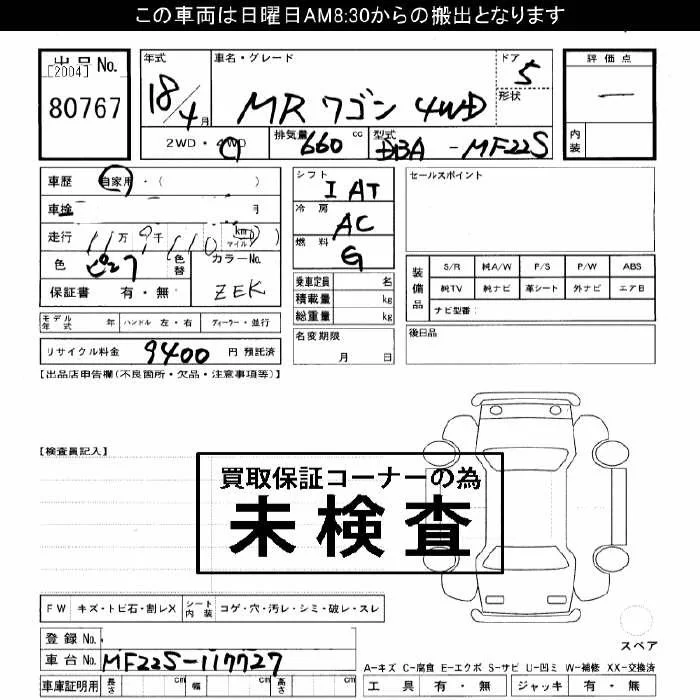 この車両は日曜日AM8:30からの搬出となります
出品No.
[2004]
80767
年式
18/4月
車名・グレード
MR ワゴン 4WD
ドア
5
形状
評価点
—
内装
2WD・4WD
排気量
660 cc
型式
DBA - MF22S
車歴 自家用・( )
車検 月
走行 11万9千110 (km マイル)
色 ピンク
色替
カラーNo.
ZEK
保証書 有・無
シフト
I AT
冷房
AC
燃料
G
乗車定員 名
積載量 kg
総重量 kg
名変期限
月 日
セールスポイント
装備品
S/R 純A/W P/S P/W ABS
純TV 純ナビ 革シート 外ナビ エアB
ナビ型番:
後日品
モデル年式 年 ハンドル 左・右 ディーラー・並行
リサイクル料金 9400 円 預託済
【出品店申告欄(不良箇所・欠品・注意事項等)】
【検査員記入】
買取保証コーナーの為
未検査
FW キズ・トビ石・割レX シート内装 コゲ・穴・汚レ・シミ・破レ・スレ
スペア
登録No.
車台No. MF22S-117727
車庫証明用 長さ cm 幅 cm 高さ cm
A-キズ C-腐食 E-エクボ S-サビ U-凹ミ W-補修 XX-交換済
工具 有・無 ジャッキ 有・無